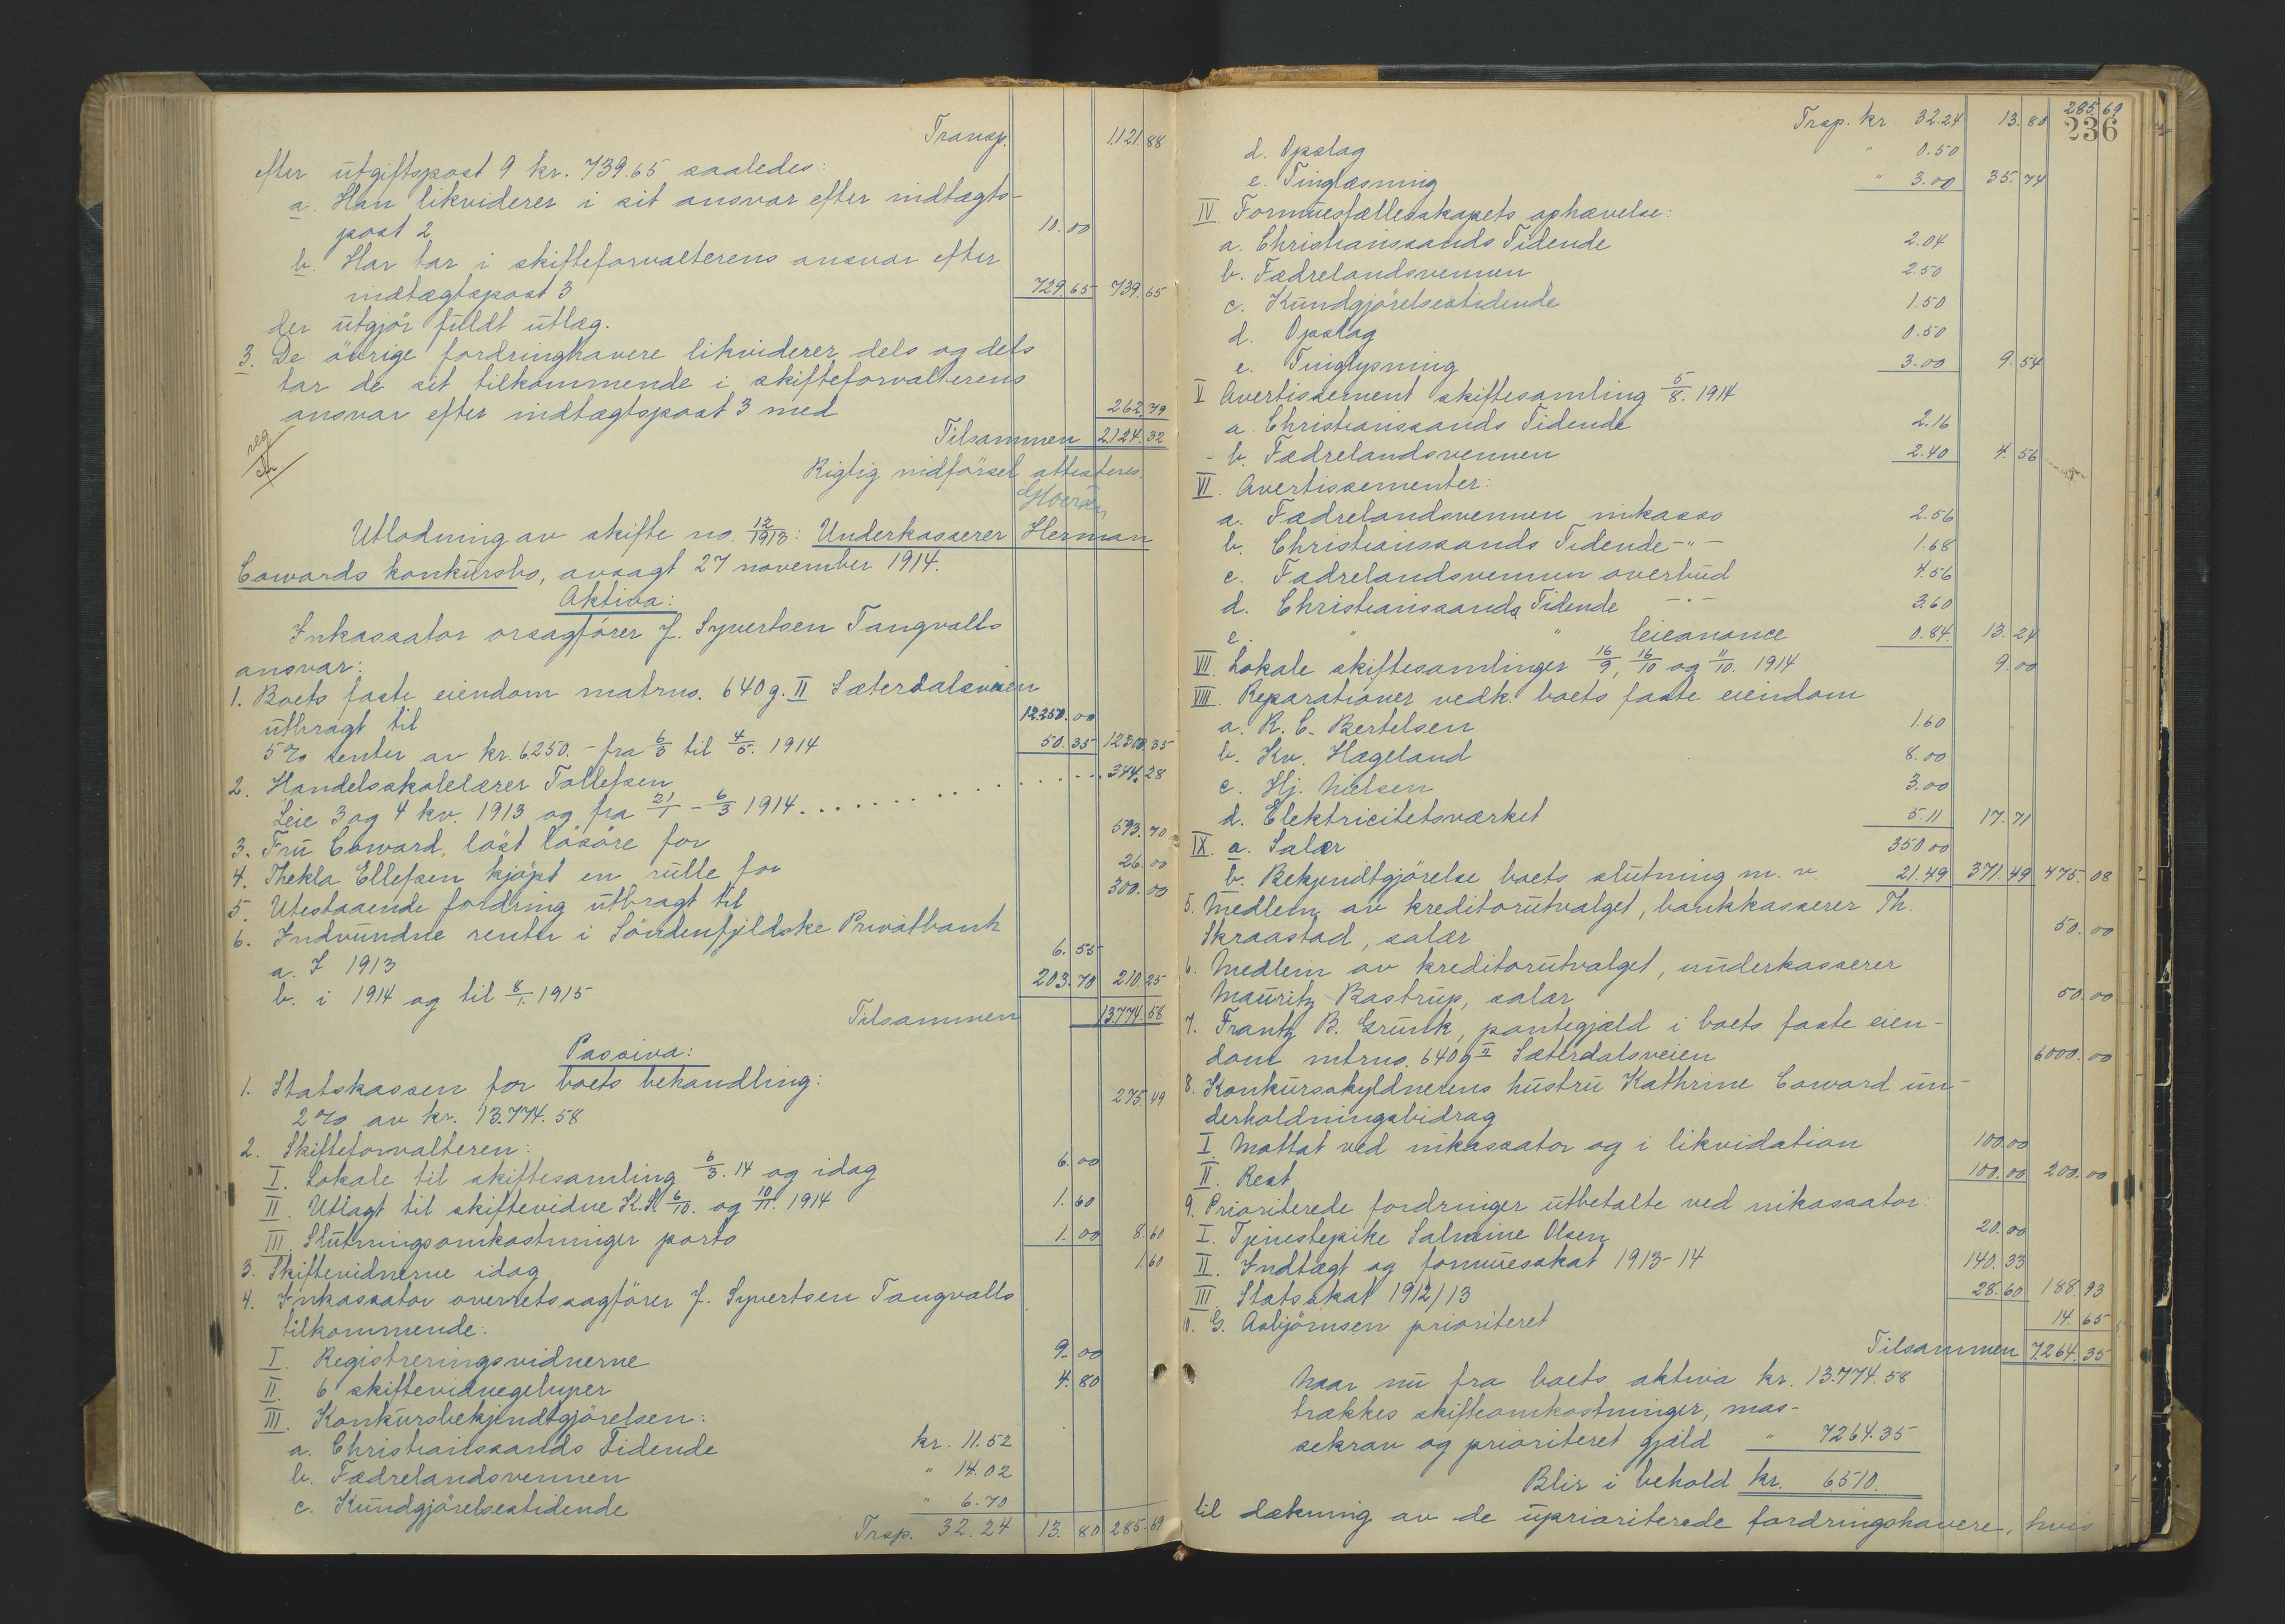 Transp. 1.121.88
efter utgiftspost 9 kr. 739.65 saaledes:
a. Han likviderer i sit ansvar efter indtægts-
post 2 10.00
b. Har tar i skifteforvalterens ansvar efter
indtægtspost 3 729.65 739.65
der utgjör fuldt utlæg.
3. De övrige fordringhavere likviderer dels og dels
tar de sit tilkommende i skifteforvalterens
ansvar efter indtægtspost 3 med 262.79
Tilsammen 2124.32
Rigtig indförsel attesteres.
Utlodning av skifte no. 12/1913: Underkasserer Herman
Cowards konkursbo, avsagt 27 november 1914.
Aktiva:
Inkassator orsagförer J. Syvertsen Tangvalls
ansvar:
1. Boets faste eiendom matrno. 640 g. II Sæterdalsveien
utbragt til 12250.00
5% renter av kr. 6250.- fra 6/3 til 4/5. 1914 50.35 12300.35
2. Handelsskolelærer Tollefsen
Leie 3 og 4 kv. 1913 og fra 21/1 - 6/3 1914 . . . . . . . . . . 344.28
3. Fru Coward, löst lösöre for 593.70
4. Thekla Ellefsen kjöpt en rulle for 26.00
5. Utestaaende fordring utbragt til 300.00
6. Indvundne renter i Söndenfjeldske Privatbank
a. I 1913 6.55
b. i 1914 og til 8/1. 1915 203.70 210.25
Tilsammen 13.774.58
Passiva:
1. Statskassen for boets behandling:
2% av kr. 13.774.58 275.49
2. Skifteforvalteren:
I. Lokale til skiftesamling 6/3. 14 og idag 6.00
II. Utlagt til skiftevidne K.S. 6/10. og 10/11. 1914 1.60
III. Slutningsomkostninger porto 1.00 8.60
3. Skiftevidnerne idag 1.60
4. Inkassator overretssagförer J. Syvertsen Tangvalls
tilkommende:
I. Registreringsvidnerne 9.00
II. 6 skiftevidnegebyrer 4.80
III. Konkursbekjendtgjörelsen:
a. Christianssands Tidende kr. 11.52
b. Fædrelandsvennen " 14.02
c. Kundgjörelsestidende " 6.70
Trsp. 32.24 13.80 285.69
236
Trsp. kr. 32.24 13.80 285.69
d. Opslag " 0.50
e. Tinglæsning " 3.00 35.74
IV. Formuesfællesskapets ophævelse:
a. Christianssands Tidende 2.04
b. Fædrelandsvennen 2.50
c. Kundgjörelsestidende 1.50
d. Opslag 0.50
e. Tinglysning 3.00 9.54
V Avertissement skiftesamling 5/8. 1914
a. Christianssands Tidende 2.16
- b. Fædrelandsvennen 2.40 4.56
VI. Avertissementer:
a. Fædrelandsvennen inkasso 2.56
b. Christianssands Tidende -"- 1.68
c. Fædrelandsvennen overbud 4.56
d. Christianssands Tidende -"- 3.60
e. " " leieanonce 0.84 13.24
VII. Lokale skiftesamlinger 16/9, 16/10 og 11/10. 1914 9.00
VIII. Reparationer vedk. boets faste eiendom
a. R. C. Bertelsen 1.60
b. Kv. Hægeland 8.00
c. Hj. Nielsen 3.00
d. Elektricitetsværket 5.11 17.71
IX. a. Salær 350.00
b. Bekjendtgjörelse boets slutning m. v. 21.49 371.49 475.08
5. Medlem av kreditorutvalget, bankkasserer Th.
Skraastad, salær 50.00
6. Medlem av kreditorutvalget, underkasserer
Mauritz Bastrup, salær 50.00
7. Frantz B. Grunk, pantegjæld i boets faste eien-
dom mtrno. 640 g II Sæterdalsveien 6000.00
8. Konkursskyldnerens hustru Kathrine Coward un-
derholdningsbidrag
I. Mottat ved inkassator og i likvidation 100.00
II. Rest 100.00 200.00
9. Prioriterede fordringer utbetalte ved inkassator:
I. Tjenestepike Salmine Olsen 20.00
II. Indtægt og formuesskat 1913-14 140.33
III. Statsskat 1912/13 28.60 188.93
10. G. Asbjörnsen prioriteret 14.65
Tilsammen 7.264.35
Naar nu fra boets aktiva kr. 13.774.58
trækkes skifteomkostninger, mas-
sekrav og prioriteret gjæld " 7264.35
Blir i behold kr. 6510.
til dækning av de uprioriterede fordringshavere, hvis